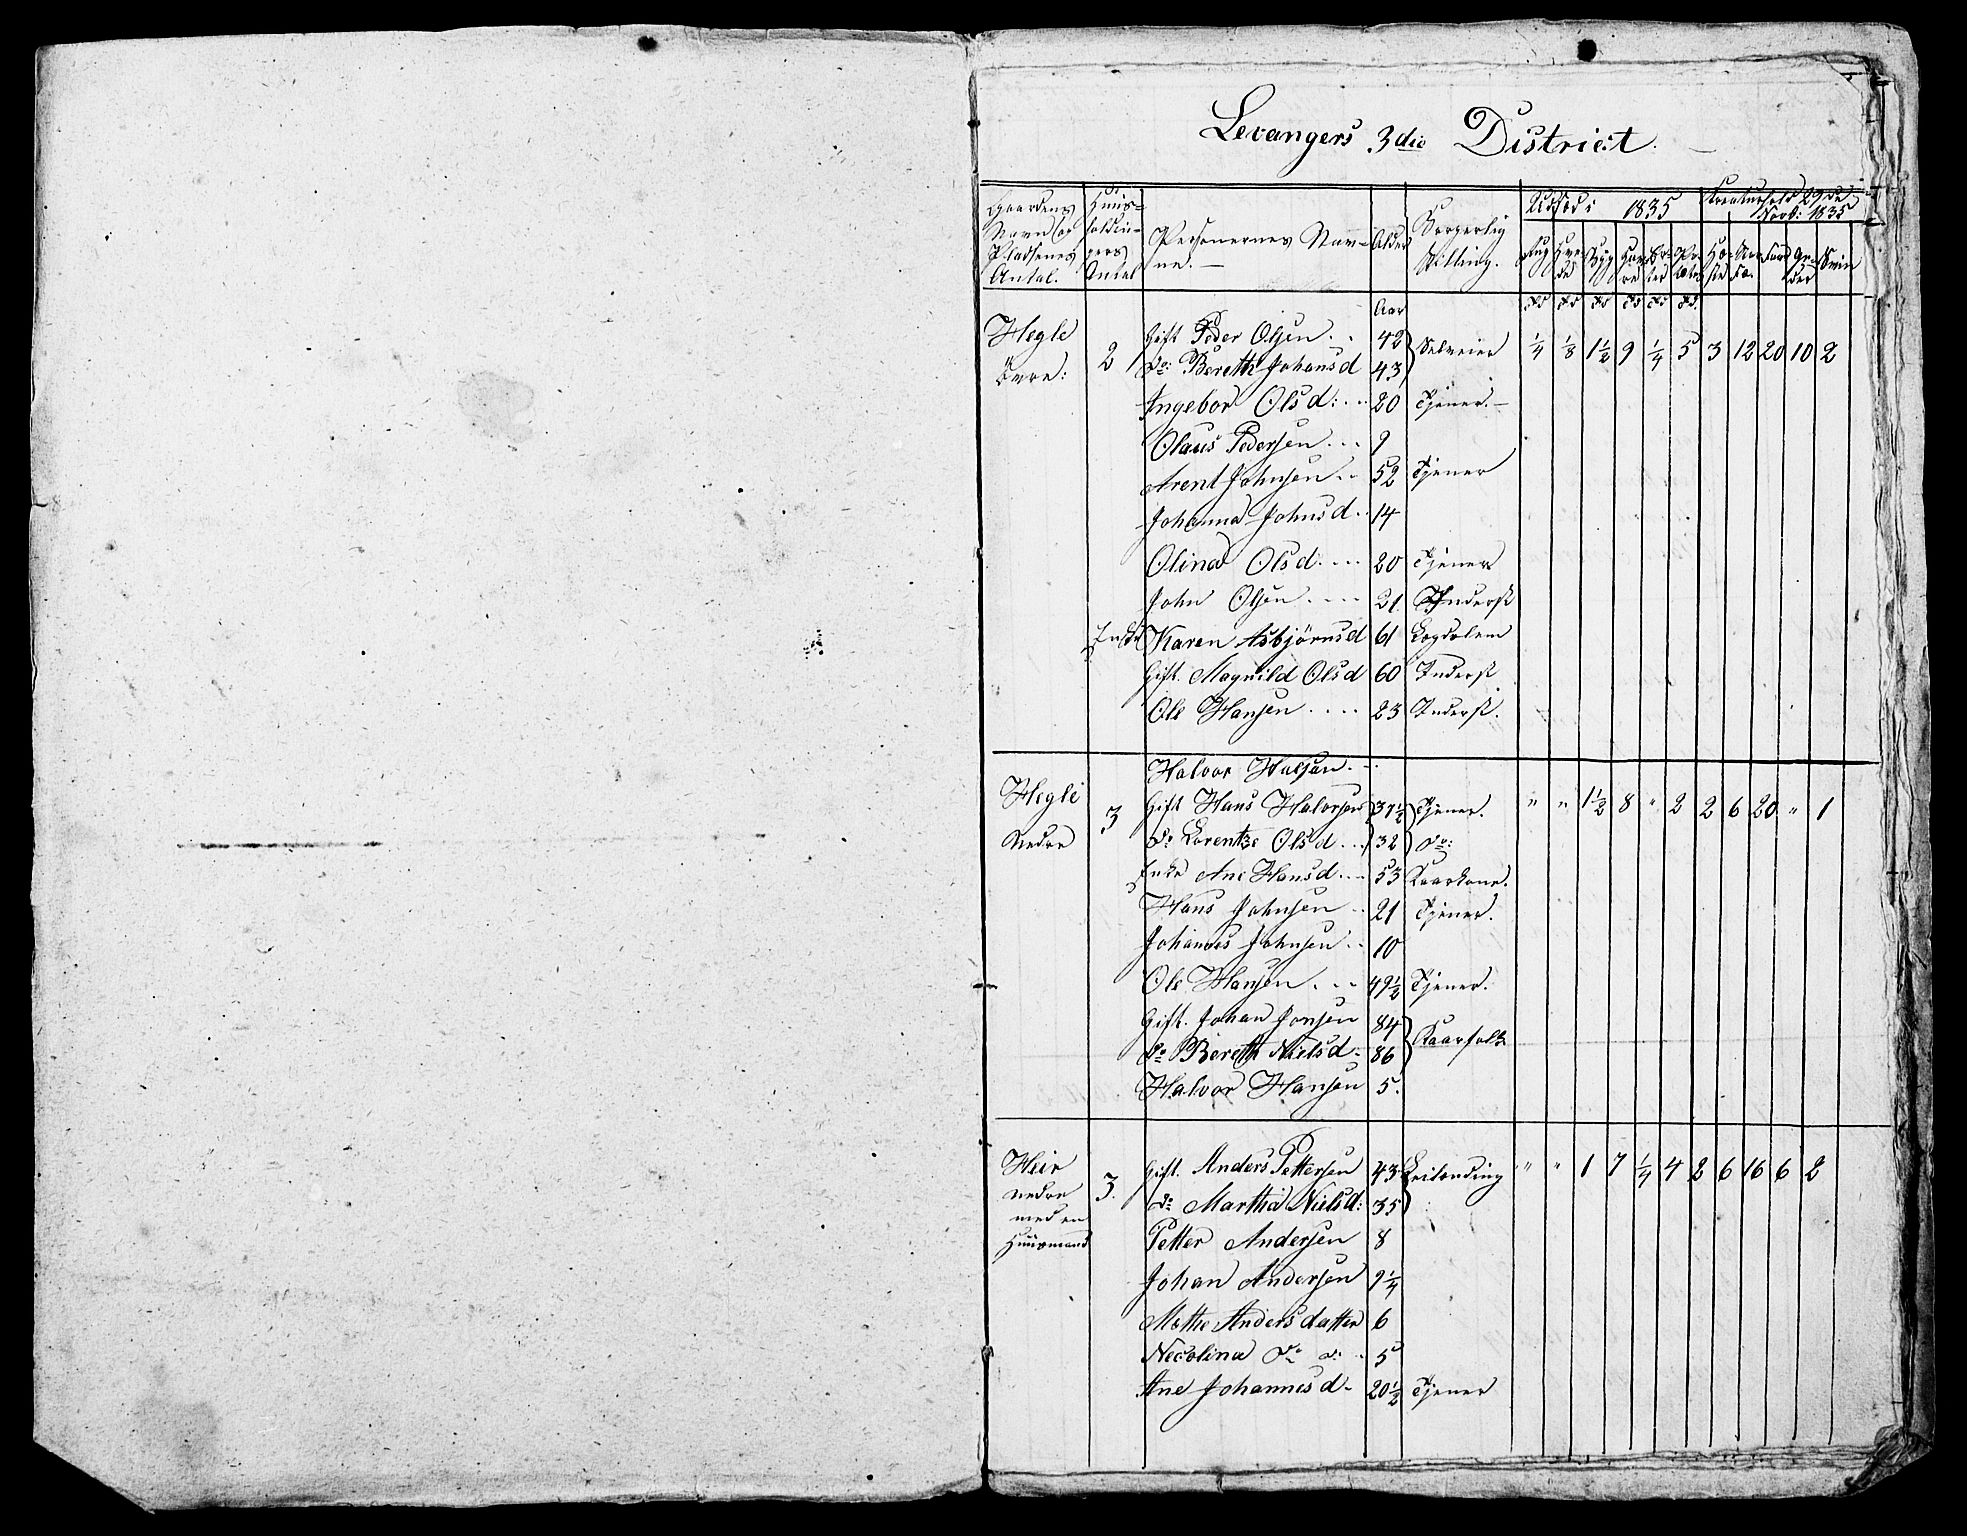 Levangers 3die District.
Gaardens Navn og Pladsenes Antal. Huus-holdnin-gers Antal Personernes Nav-ne. Alder Borgerlig Stilling. Udsæd i 1835 Kreaturhold 29de Novb: 1835
Rug Hve-de Byg Hav-re Er-ter Po-teter He-ste Qvæ Faar Gi-der Sviin
Aar
Hegle 2 Gift Peder Olsen 42 Selveier 1/4 1/8 1 1/2 9 1/4 5 3 12 20 10 2
övre: do: Bereth Johansd 43
Ingebor Olsd: 20 Tjener.
Olaus Pedersen 9
Arent Johnsen 52 Tjener
Johanna Johnsd 14
Olina Olsd 20 Tjener
John Olsen 21 Inderst
Enke Karen Asbjörnsd 61 Logdslem
Gift. Magnild Olsd 60 Inderst
Ole Hansen 23 Inderst.
Halvor Halsen.
Hegle 3 Gift Hans Halvorsen 37 1/2 Tjener. " " 1 1/2 8 " 2 2 6 20 " 1
Nedre do Lorentze Olsd 32 do:
Enke Ane Hansd 53 Kaarkone.
Hans Johnsen 21 Tjener.
Johannes Johnsen 10
Ole Hansen 49 1/2 Tjener.
Gift. Johan Jonsen 84 Kaarfolk
do Bereth Nielsd 86
Halvor Hansen 5.
Heir 3. Gift. Anders Pettersen 43 Leilænding " " 1 7 1/4 4 2 6 16 6 2
nedre do Martha Nielsd: 35
med en Petter Andersen 8
Huusmand
Johan Andersen 9 1/4
Mathe Andersdatter 6
Necolina do do 5
Ane Johannesd 20 1/2 Tjener